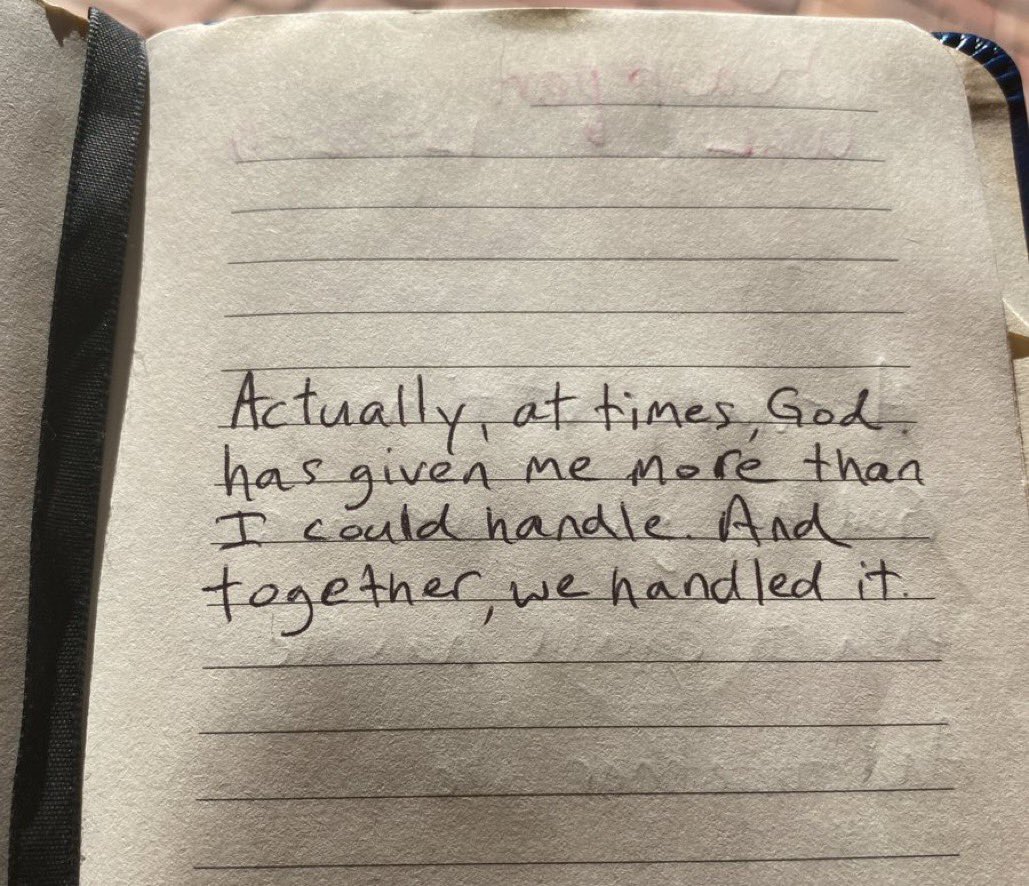 Actually, at times, God
has given me more than
I could handle. And
together, we handled it.